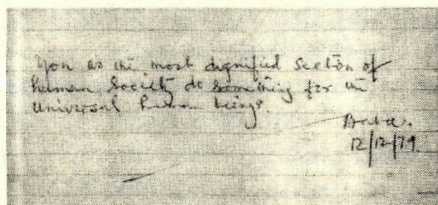 You as the most dignified section of
human Society do something for the
universal human beings.
Baba.
12/12/79